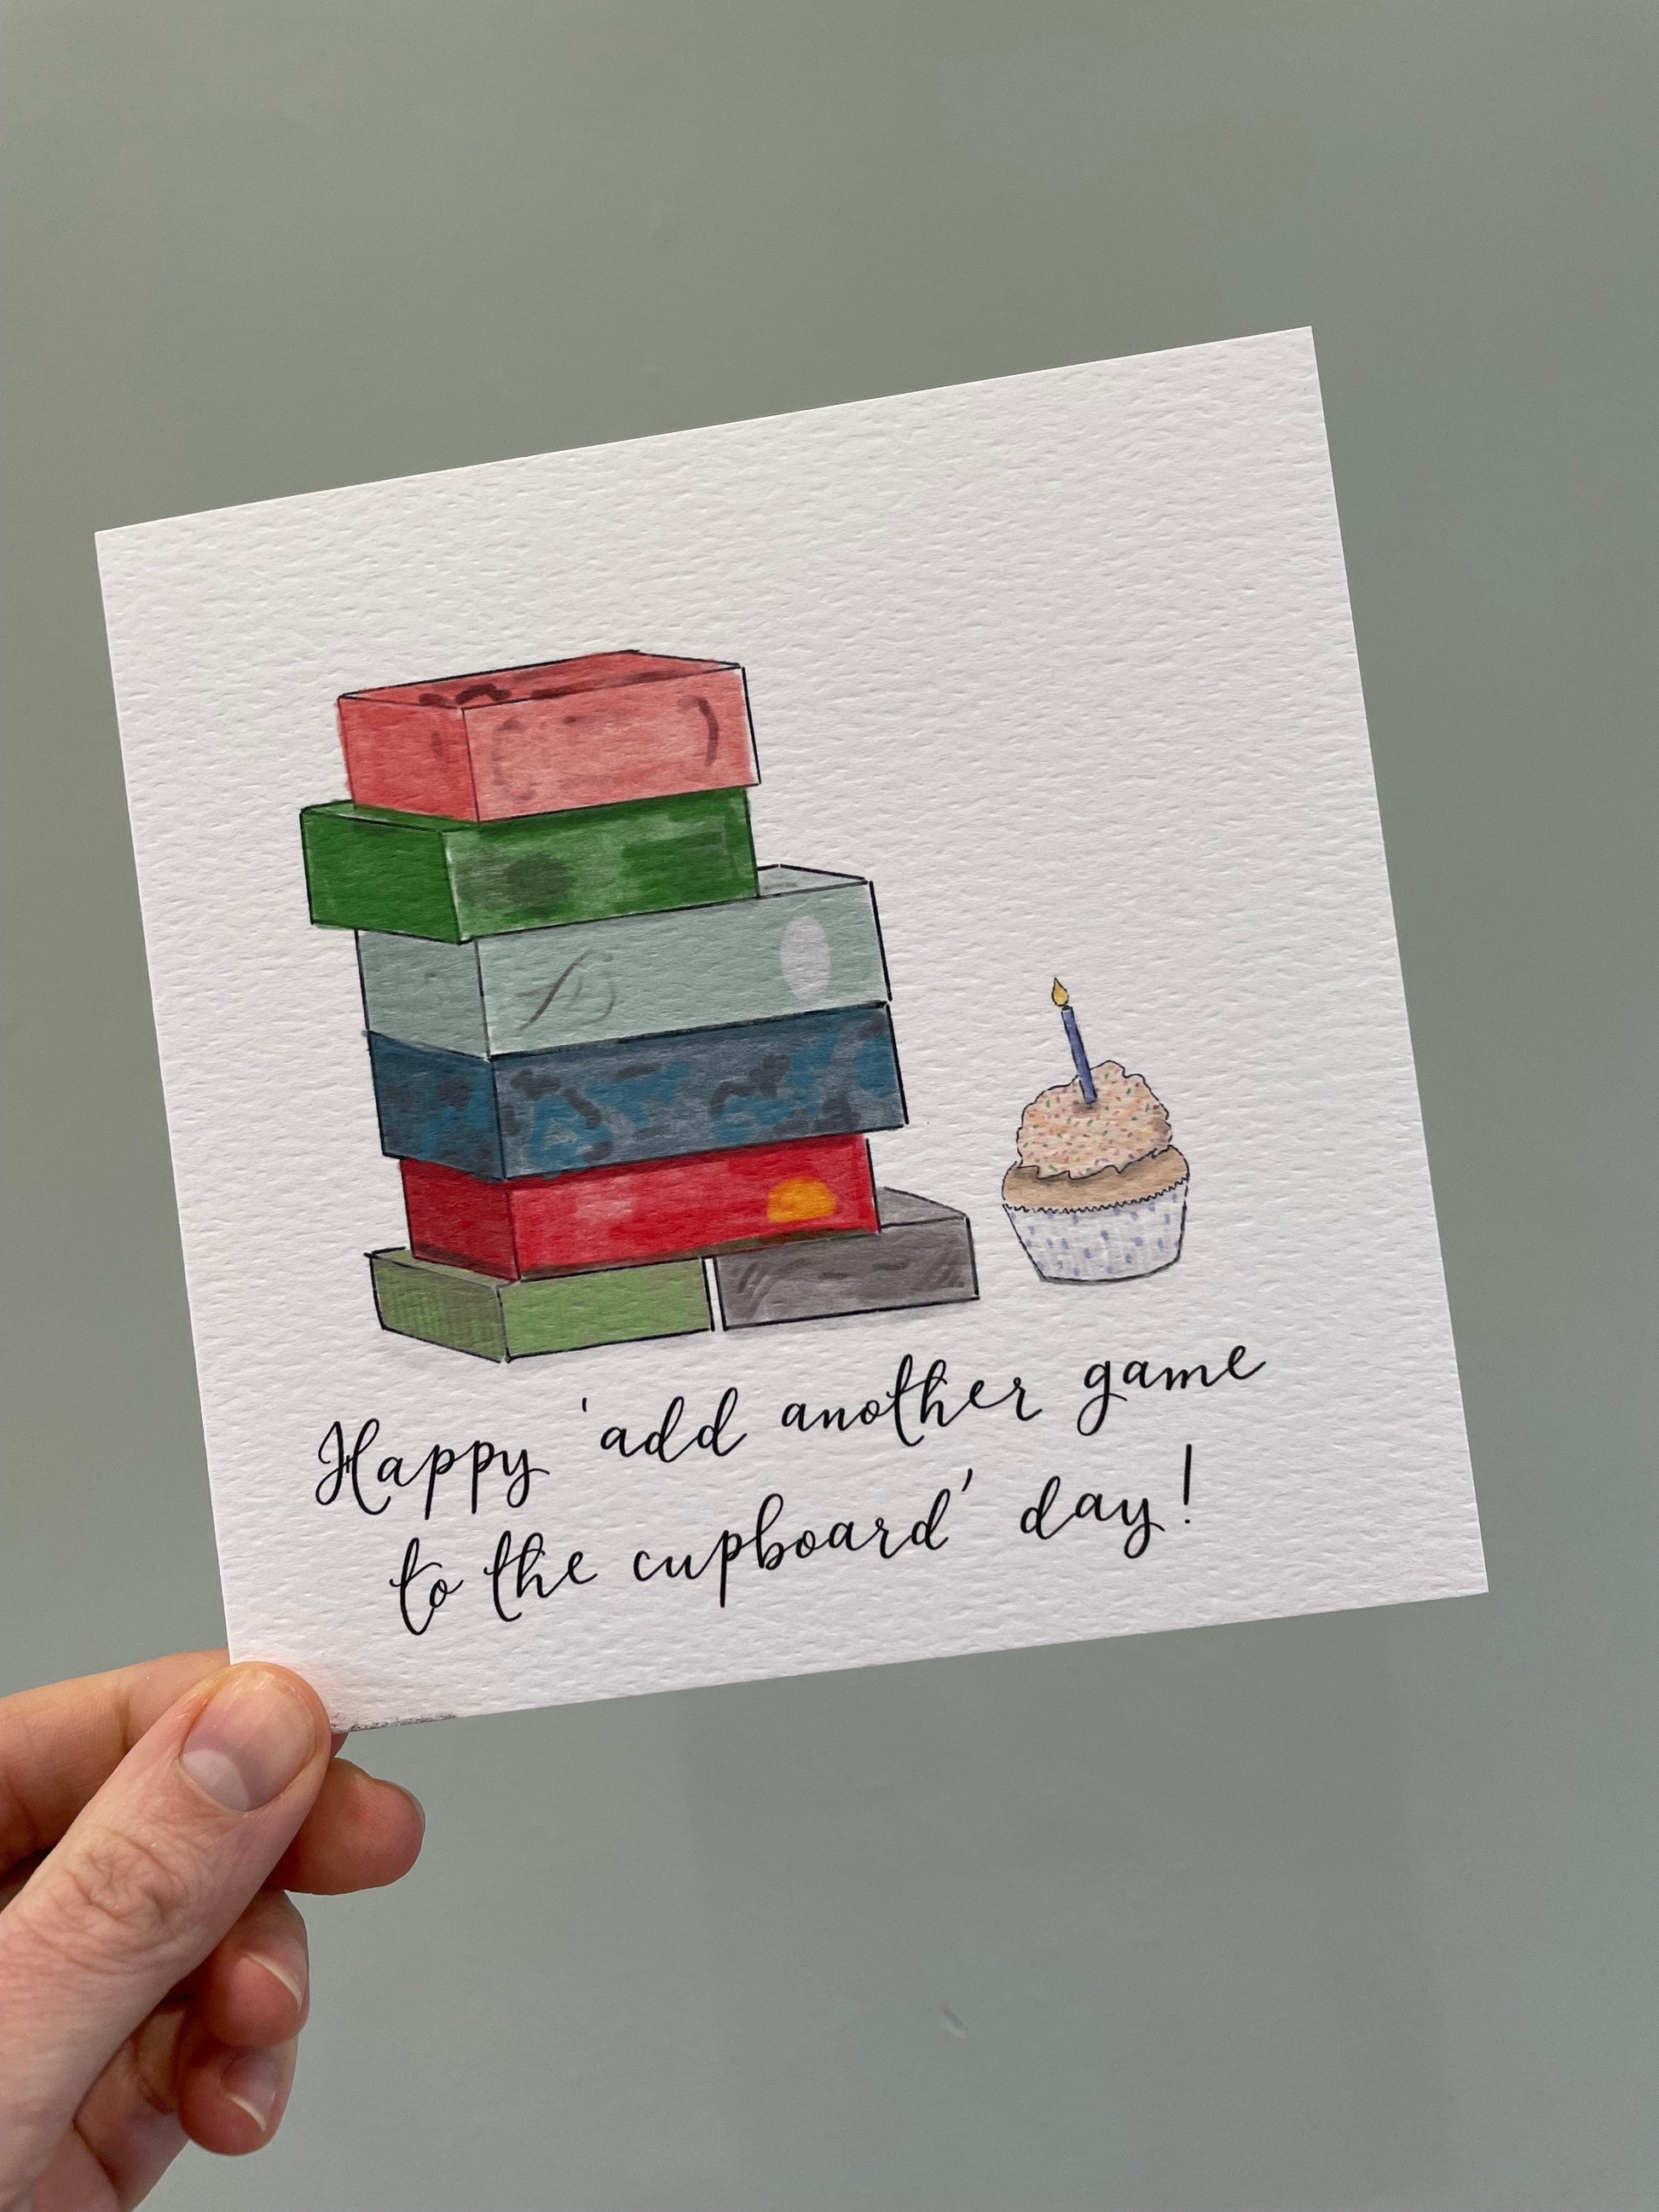 Happy 'add another game
to the cupboard' day!